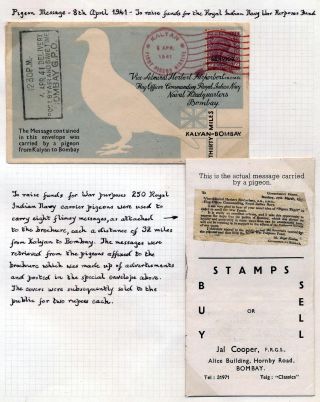 Pigeon Message - 8th April 1941 - To raise funds for the Royal Indian Navy War Purposes Fund
12.30 P.M.
APR. 41. DELIVERY
BOMBAY G.P.O.
KALYAN
8 APR.
1941
Vice-Admiral Herbert Fitzherbert
Flag Officer Commanding Royal Indian Navy
Naval Headquarters
Bombay.
THIRTY MILES
KALYAN-BOMBAY
The Message contained
in this envelope was
carried by a pigeon
from Kalyan to Bombay
To raise funds for War purposes 250 Royal
Indian Navy carrier pigeons were used to
carry eight flimsy messages, as attached
to the brochure, each a distance of 32 miles
from Kalyan to Bombay. The messages were
retrieved from the pigeons affixed to the
brochure which was made up of advertisements
and posted in the special envelope above.
The covers were subsequently sold to the
public for two rupees each.
This is the actual message carried
by a pigeon.
STAMPS
BUY
OR
SELL
Jal Cooper, F.R.G.S.
Alice Building, Hornby Road,
BOMBAY.
Tel: 21971 Telg: "Classics"